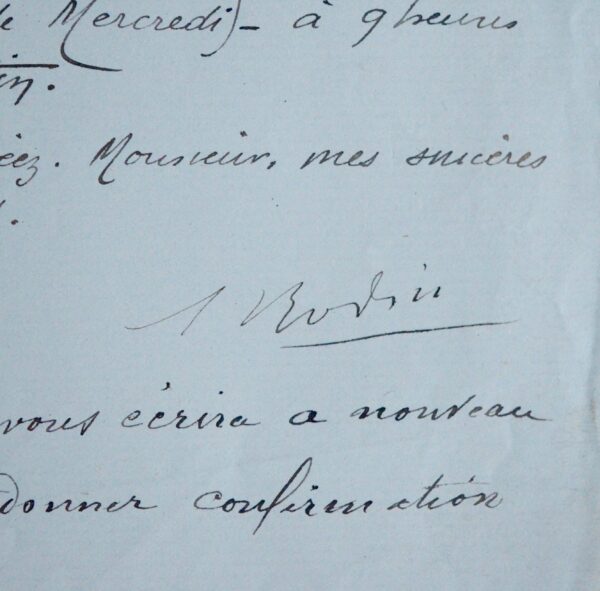 de Mercredi) - à 9 heures
in.
éez. Monsieur, mes sincères
A Rodin
vous écrira a nouveau
donner confirmation